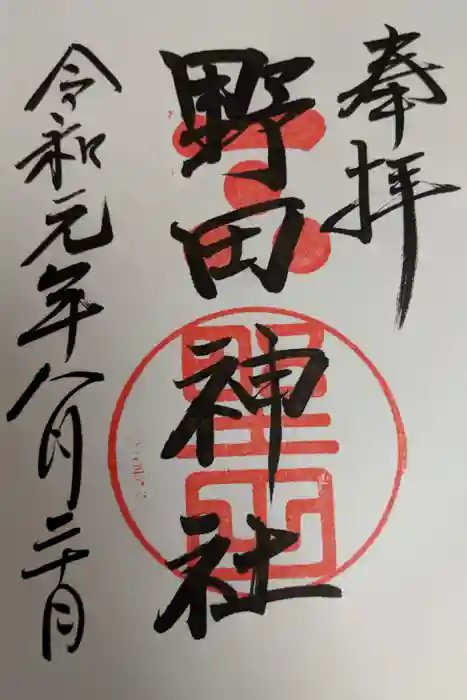 奉拝
野田神社
令和元年八月三十日